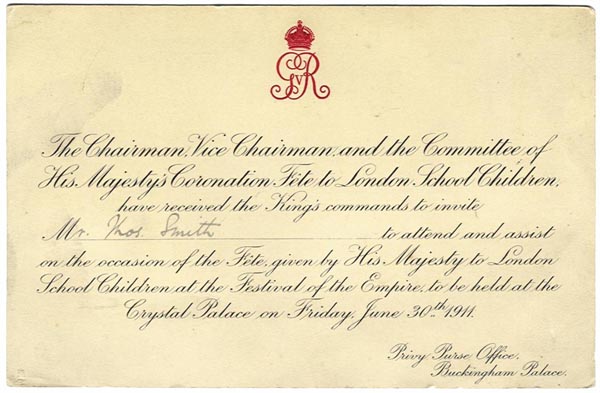 GVR
The Chairman, Vice Chairman, and the Committee of
His Majesty's Coronation Fête to London School Children,
have received the King's commands to invite
Mr. Thos. Smith to attend and assist
on the occasion of the Fête, given by His Majesty to London
School Children at the Festival of the Empire, to be held at the
Crystal Palace on Friday, June 30th 1911.
Privy Purse Office,
Buckingham Palace.